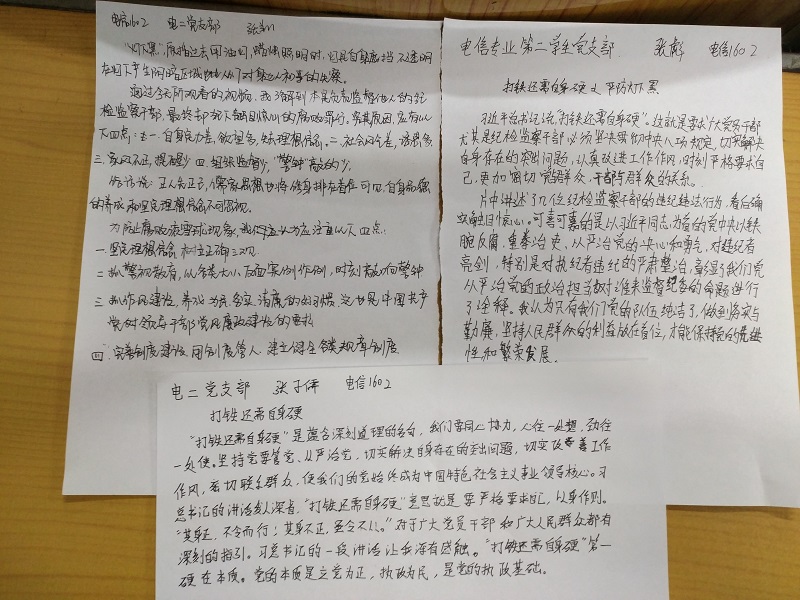 电信1602 电二党支部
"灯下黑"原指过去用油灯
通过今天所观看的视频,我了解到本来负责监督他人的纪
检监察干部,最终却
以下四点:一.自身定力差,欲望高,缺理想信念。二.社会风气差,诱惑多
三.家风不正,提醒少 四.组织监督少,"警钟"敲的少。
的养成和坚定理想信念不同忽视。
为防止腐败现象,我们应认为应注重以下四点:
一.坚定理想信念,树立正确三观
二.抓警视教育,以各类大小反面案例作例,时刻敲响警钟
三.抓作风建设,养成为民、务实、清廉的好习惯,这也是中国共产
党对领导干部党风廉政建设的要求
四.完善制度建设,用制度管人,建立健全各类规章制度
电信专业第二学生党支部. 张彪 电信1602
打铁还需自身硬 严防灯下黑
习近平总书记说,"打铁还需自身硬"。这就是要求广大党员干部
尤其是纪检监察干部必须坚决贯彻中央八项规定,切实解决
自身存在的突出问题,认真改进工作作风,时刻严格要求自
己,更加密切党的群众、干部与群众的关系。
片中讲述了几位纪检监察干部的违纪违法行为,看后确
实触目惊心。可喜可嘉的是以习近平同志为首的党中央以铁
腕反腐、重拳治吏、从严治党的决心和勇气,对违纪者
亮剑,特别是对执纪者违纪的严肃整治,彰显了我们党
从严治党的政治担当,也对谁来监督纪委的命题进行
了诠释。我认为只有我们党的队伍纯洁了,做到务实与
勤廉,坚持人民群众的利益放在首位,才能保持党的先进
性和繁荣发展.
电二党支部 张子伟 电信1602
打铁还需自身硬
"打铁还需自身硬"是蕴含深刻道理的名句,我们要同心协力,心往一处想,劲往
一处使。坚持党要管党、从严治党,切实解决自身存在的突出问题,切实改善工作
作风,密切联系群众,使我们的党始终成为中国特色社会主义事业领导核心。习
总书记的讲话发人深省,"打铁还需自身硬"意思就是要严格要求自己,以身作则。
"其身正,不令而行;其身不正,虽令不从。"对于广大党员干部和广大人民群众都有
深刻的指引。习总书记的一段讲话让我深有感触。"打铁还需自身硬"第一
硬在本质。党的本质是立党为正,执政为民,是党的执政基础。